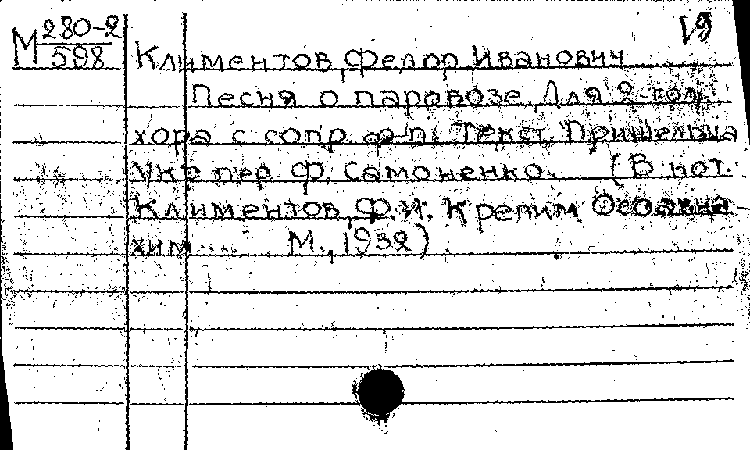 М 280-2 19
598 Климентов, Федор Иванович
Песня о паровозе. Для 2-гол.
хора с сопр. ф-п. Текст Пришельца
Укр пер. Ф. Самоненко. (В нот.
Климентов, Ф.И. Крепим Осоавиа-
хим М., 1932)